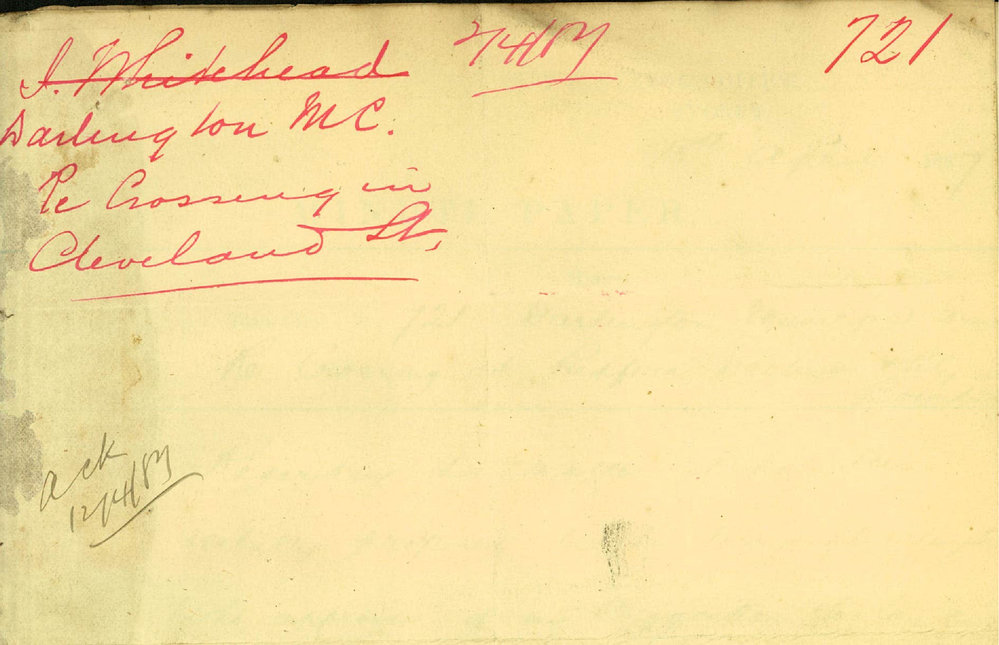 I. Whitehead
7/4/87
721
Darlington M.C.
Re Crossing in
Cleveland St,
ack
12/4/87